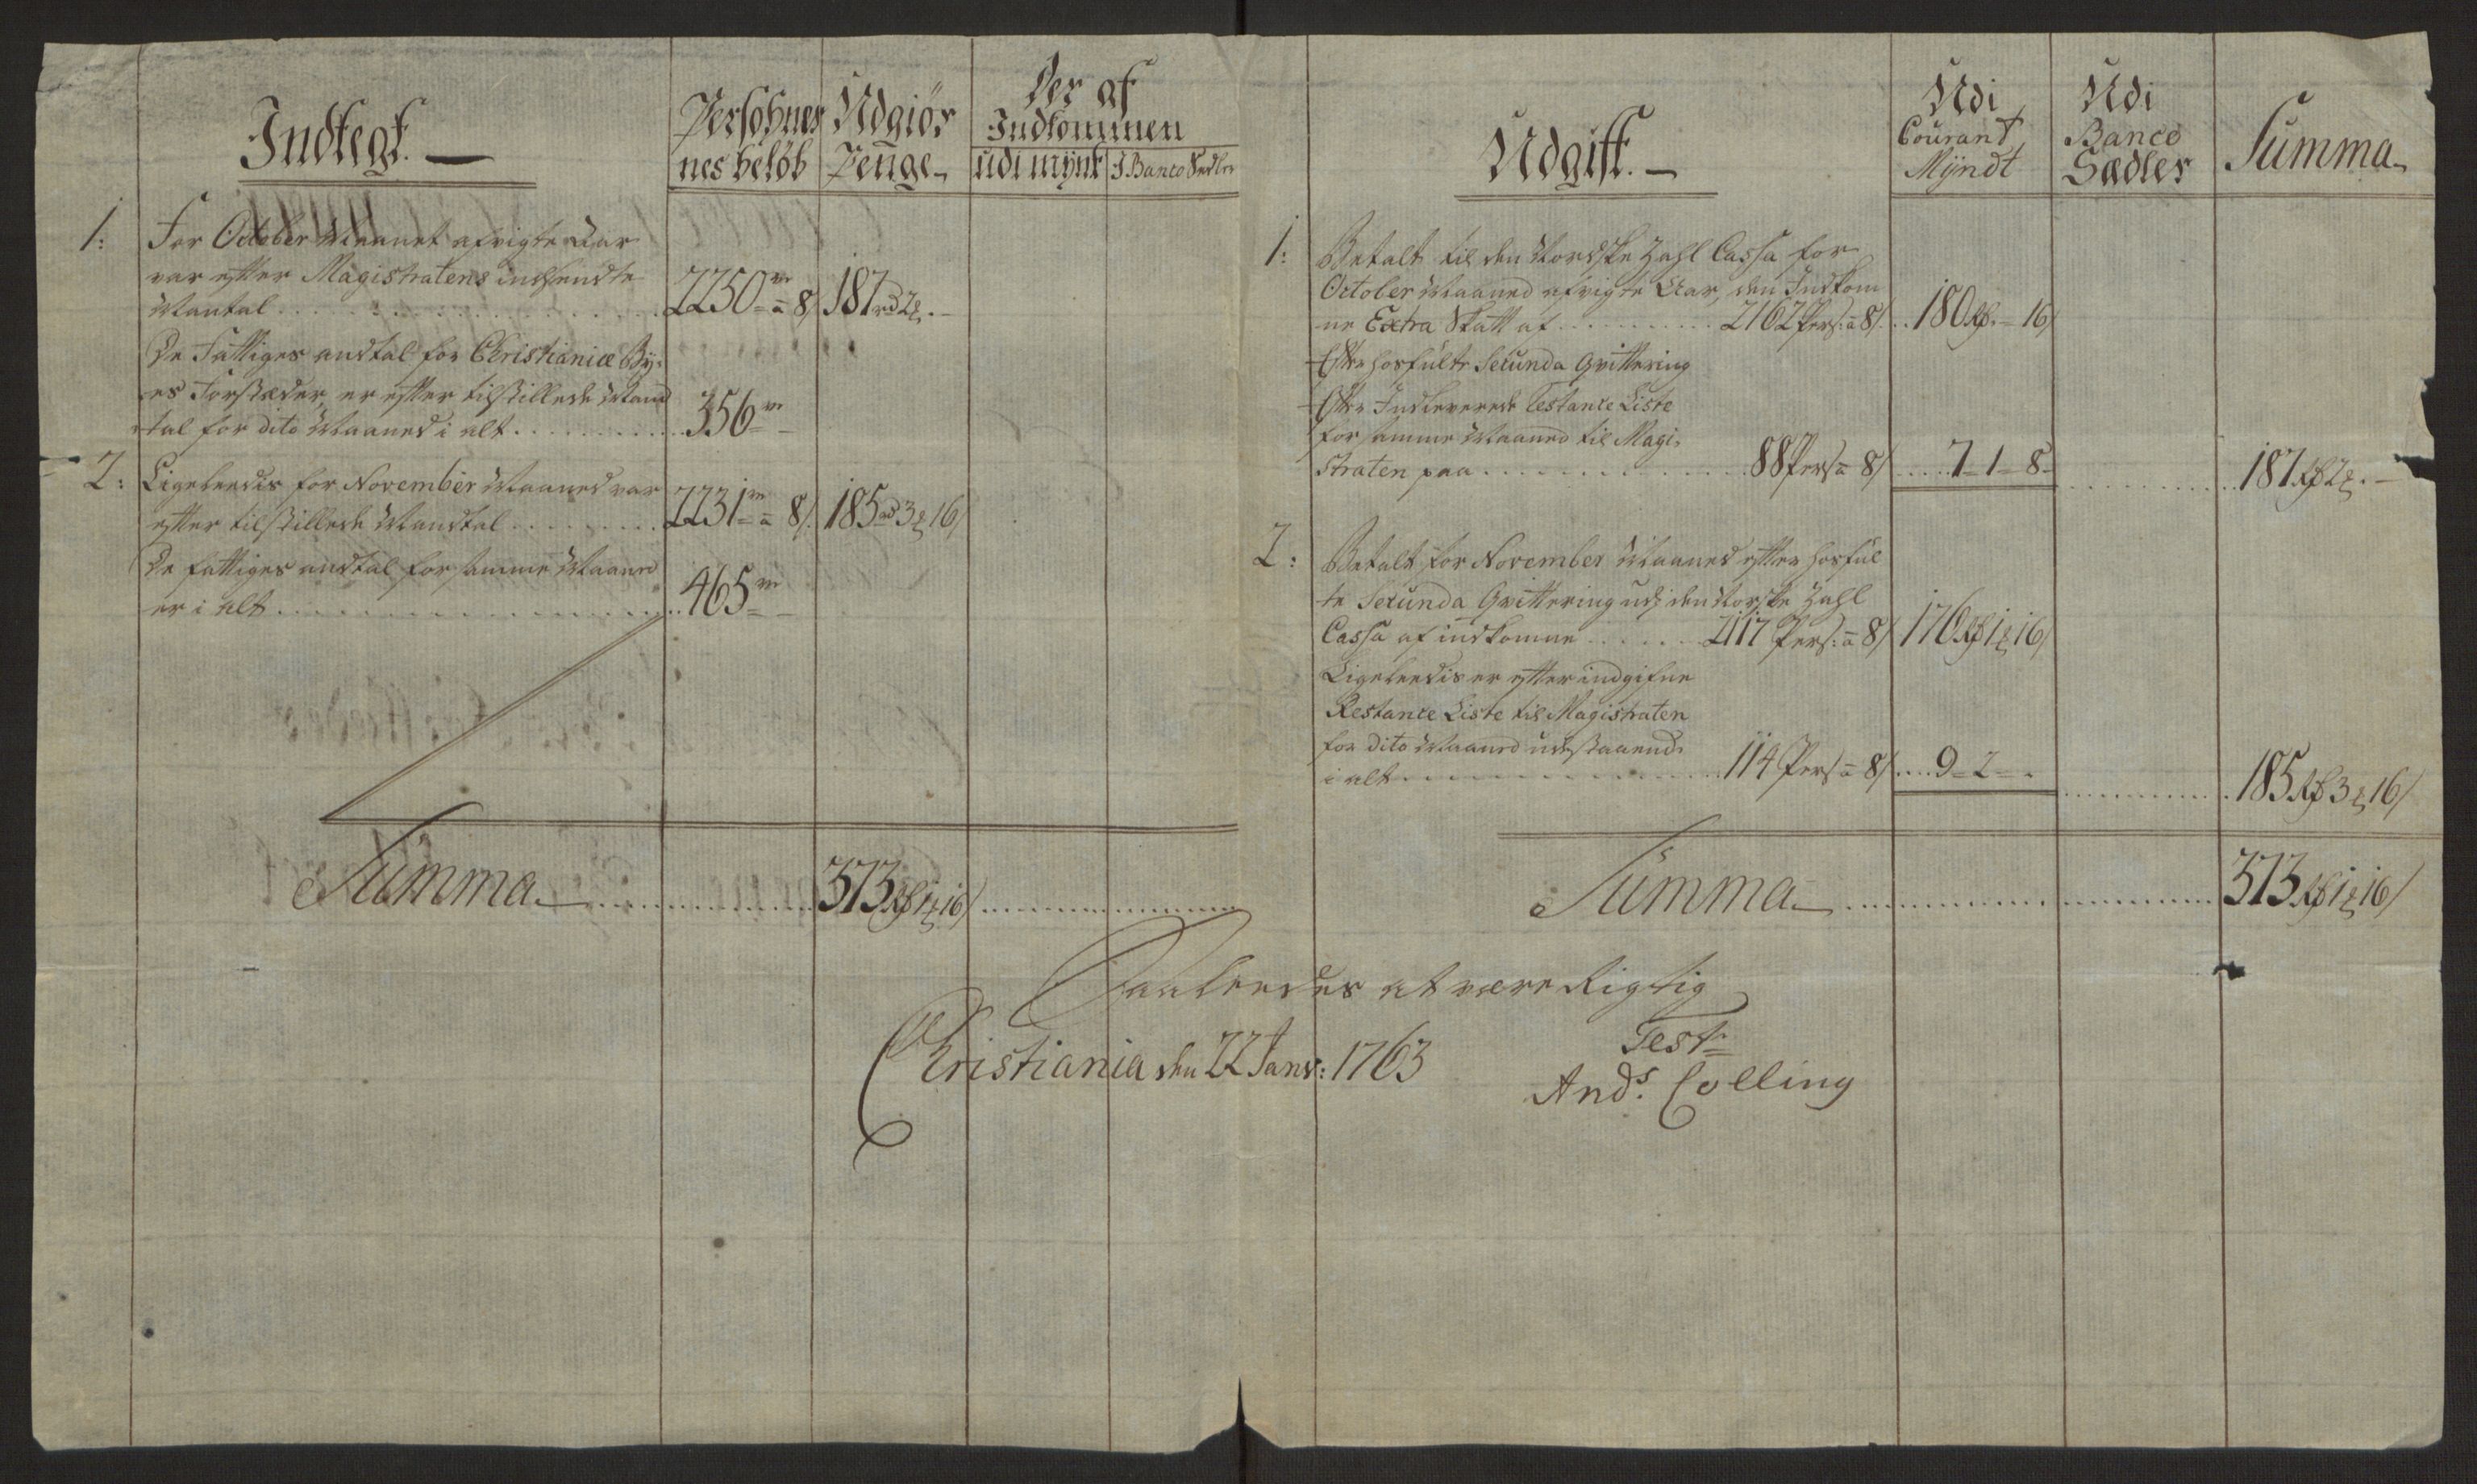 Indtegt. —
Persohner
nes beløb
Udgiør
Penge —
Der af
Indkommen
udi mÿnt
I Banco Sedler
1: For October Maanet afvigte Aar
var efter Magistratens indsendte
Mantal . . . . . 2250 à 8/ 187 rd 2 .—
De Fattiges andtal for Christianiæ Bÿ,
es Forstæder, er efter tilstillede Mand
tal for dito Maaned i alt . . . . . 356 —
2: Ligeleedis for November Maaned var
efter tilstillede Mandtal . . . . . 2231 à 8/. 185 rd 3 16/
De fattiges andtal for samme Maaned
er i alt . . . . . 465 —
Summa — . . . . . 373 Rd 1 16/ . . . . .
Udgift. —
Udi
Courant
Mÿndt
Udi
Banco
Sædler
Summa —
1: Betalt til den Nordske Zahl Cassa for
October Maaned afvigte Aar, den Indkom
ne Extra Skatt af . . . . . 2162 Pers: à 8/. . . 180 Rd. — 16/
Efter hosfült Secunda Qvittering
Efter Indleverede Restance Liste
for samme Maaned til Magi,
straten paa . . . . . 88 Pers à 8/ . . . . 7 - 1 - 8 - . . . . . 187 Rd 2 . —
2: Betalt for November Maaned efter hosfül
te Secunda Qvittering udj den Norske Zahl
Cassa af indkomne . . . . . 2117 Pers: à 8/ 176 Rd 1 16/
Ligeleedis er efter indgifne
Restance Liste til Magistraten
for dito Maaned udestaaende
i alt . . . . . 114 Pers à 8/ . . . . 9 - 2 - . . . . . . 185 Rd 3 16/
Summa — . . . . . 373 Rd 1 16/
Saaledes at være Rigtig
Christiania den 22 Janr: 1763
Test
Ands. Colling